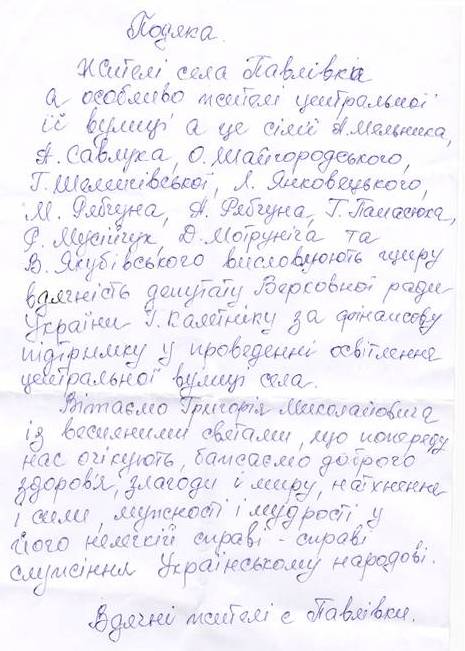 Подяка.
Жителі села Павлівка
а особливо жителі центральної
її вулиці а це сімї А.Мельника,
А. Савлука, О.Шайгородського,
Г.Шеленівської, Л. Янковецького,
М. Рябчуна, А. Рябчуна, Г. Панасюка,
Р. Мусійчук, Д. Мотруніча та
В. Якубівського висловлюють щиру
вдячність депутату Верховної ради
України Г.Калетніку за фінансову
підтримку у проведенні освітлення
центральної вулиці села.
Вітаємо Григорія Миколайовича
із весняними святами, що попереду
нас очікують, бажаємо доброго
здоров'я, злагоди й миру, натхнення
і сили, мужності і мудрості у
його нелегкій справі - справі
служіння Українському народові.
Вдячні жителі с Павлівки.